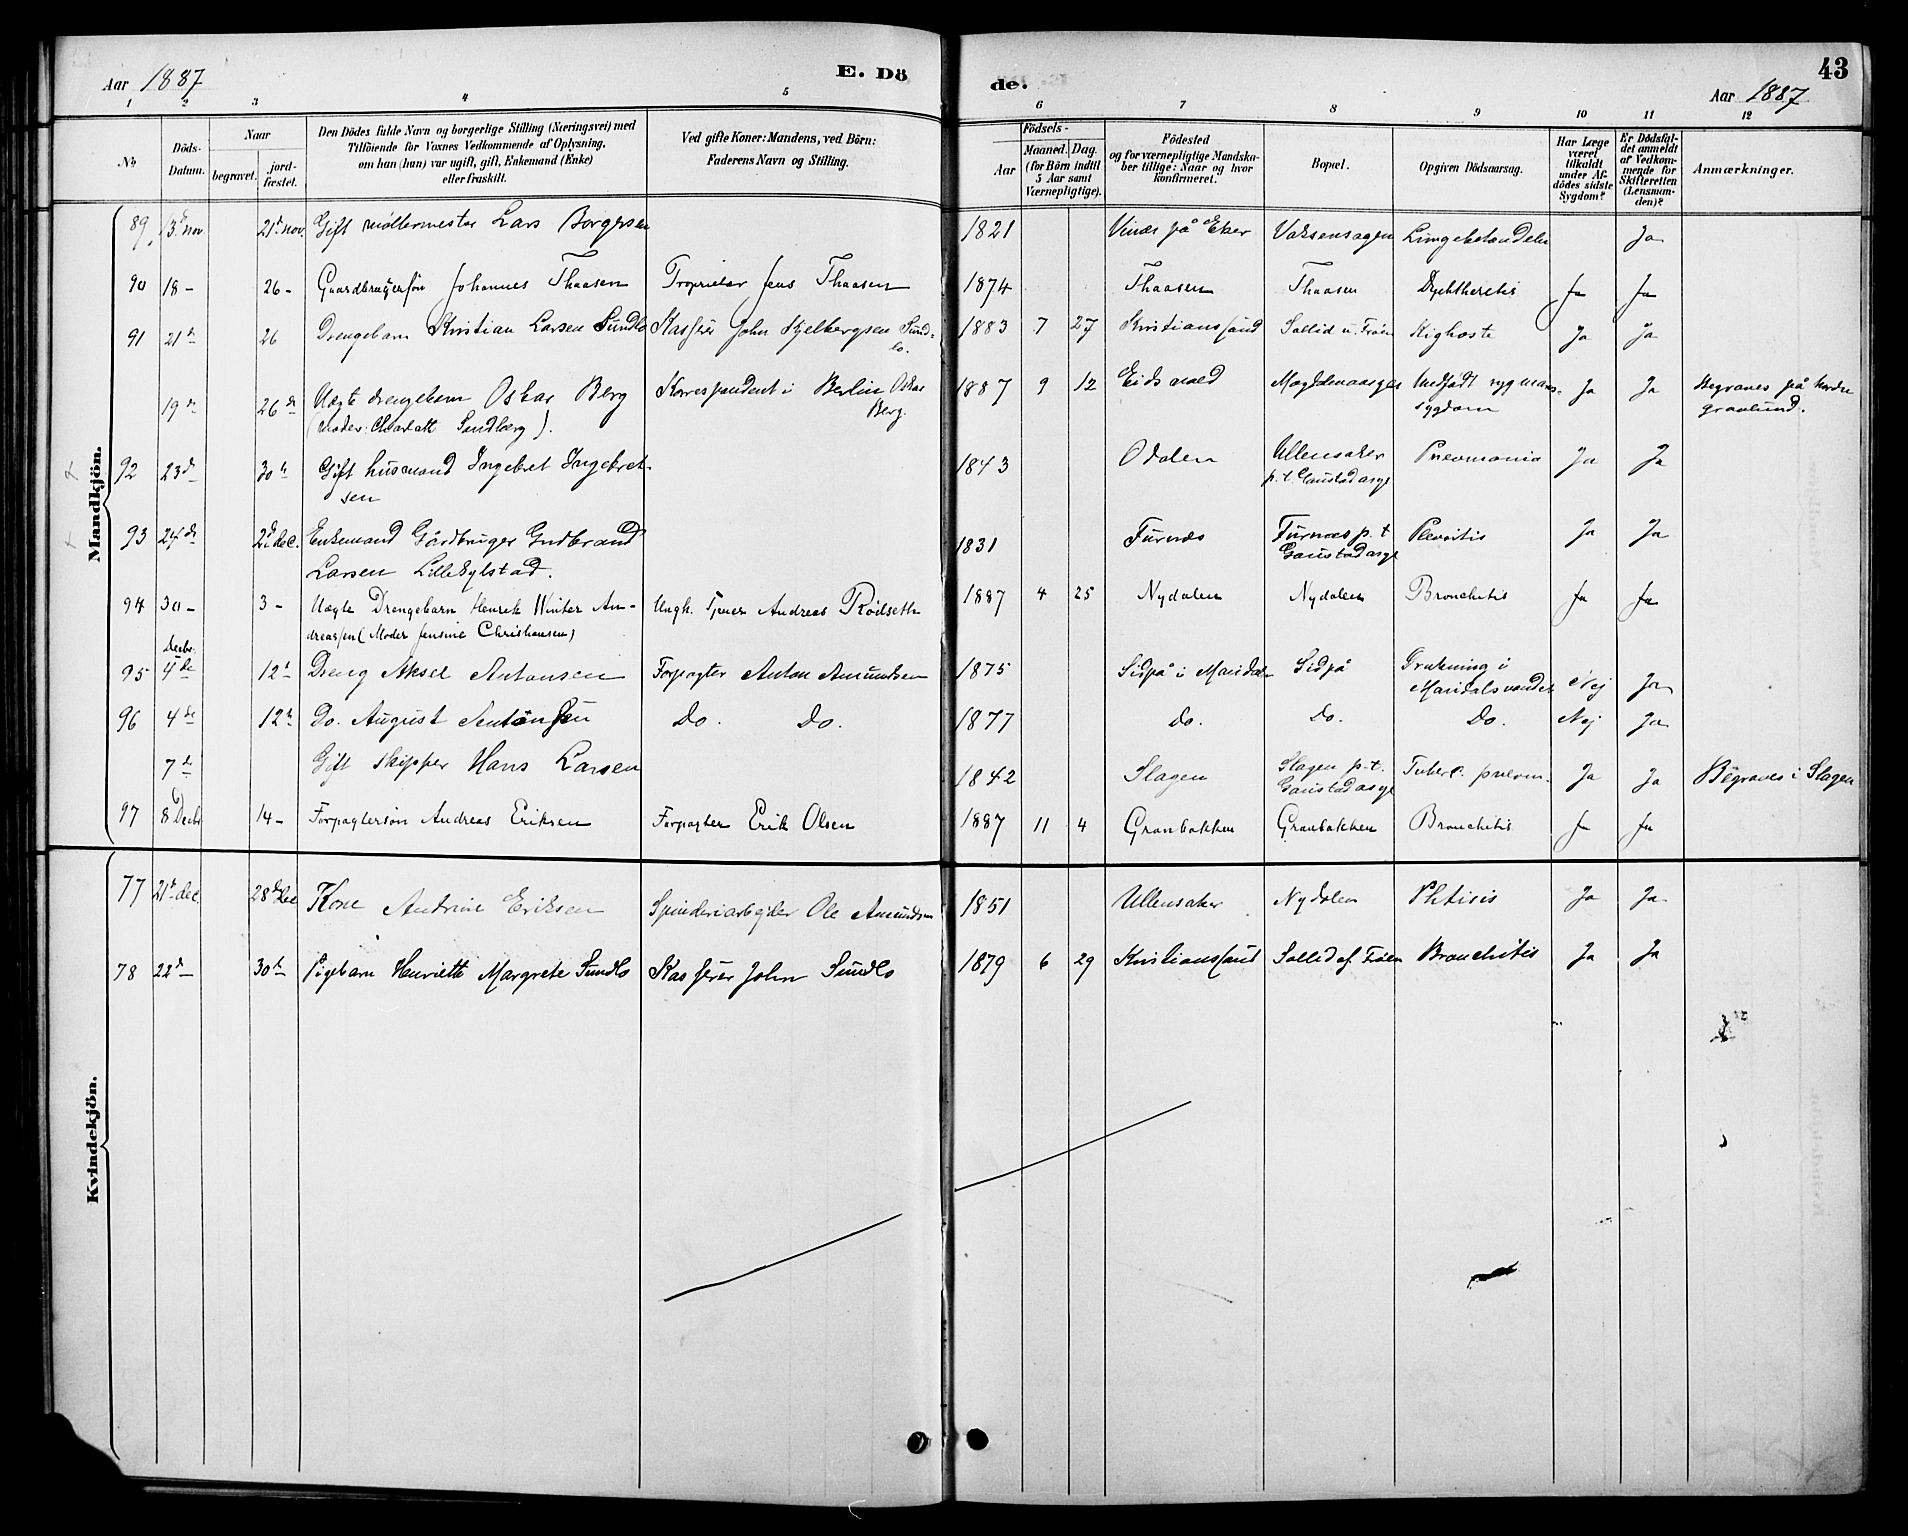 Aar 1887
E. Dö
de.
43
Aar 1887
1 2 3 4 5 6 7 8 9 10 11 12
No
Döds-
Datum.
Naar
begravet.
jord-
fæstet.
Den Dödes fulde Navn og borgerlige Stilling (Næringsvei) med
Tilföiende for Voxnes Vedkommende af Oplysning,
om han (hun) var ugift, gift, Enkemand (Enke)
eller fraskilt.
Ved gifte Koner: Mandens, ved Börn:
Faderens Navn og Stilling.
Födsels-
Aar
Maaned. Dag.
(for Börn indtil
5 Aar samt
Værnepligtige).
Födested
og for værnepligtige Mandska-
ber tillige: Naar og hvor
konfirmeret.
Bopæl.
Opgiven Dödsaarsag.
Har Læge
været
tilkaldt
under Af-
dödes sidste
Sygdom?
Er Dödsfal-
det anmeldt
af Vedkom-
mende for
Skifteretten
(Lensman-
den)?
Anmærkninger.
Mandkjön.
89 13de nov 21de nov. Gift möllermester Lars Borgersen 1821 på Eker Voksensagen Ja
90 18 - 26 - Gaardbrugersön Johannes Thaasen Proprietær Jens Thaasen 1874 Thaasen Thaasen Dyphtheritis Ja Ja
91 21de 26 Drengebarn Kristian Larsen Sundlo Kasserer John Kjelbergsen Sund-
lo. 1883 7 27 Kristianssund Sollid v. Fröen Kighoste Ja Ja
19de 26de Uægte drengebarn Oskar Berg Korrespondent i Berlin Oskar
Berg. 1887 9 12 Eidsvold Medfödt rygmarvs-
sygdom Ja Ja Begraves på Nordre
gravlund.
(Moder: Charlotte Sandberg).
92 23de 30te Gift husmand Ingebret Ingebret-
sen 1843 Odalen Ullensaker
p.t. Gaustad asyl Pneumonia Ja Ja
93 24de 2de dec. Enkemand Gårdbruger Gudbrand
Larsen Lillekylstad. 1831 Furnæs Furnæs p.t
Gaustad asyl Pleuritis Ja Ja
94 30 - 3 - Uægte Drengebarn Henrik Winter An-
dreassen (Moder Jensine Christiansen) Ungk. Andreas Rödseth 1887 4 25 Nydalen Nydalen Bronchitis Ja Ja
Decbr.
95 4de 12te Dreng Aksel Antonsen Forpagter Anton Amundsen 1875 Sidpå i Maridalen Sidpå Drukning i
Maridalsvandet Nej Ja
96 4de 12te Do. August Antonsen Do. Do. 1877 Do. Do. Do. Nej Ja
7de Gift skipper Hans Larsen 1842 Slagen Slagen p.t.
Gaustad asyl Tuberc. pneum. Ja Ja Begraves i Slagen
97 8 Decbr 14 - Forpagtersön Andreas Eriksen Forpagter Erik Olsen 1887 11 4 Granbakken Granbakken Bronchitis Ja Ja
Kvindekjön.
77 21de dec. 28de Dec Kone Andrine Eriksen Spinderiarbeider Ole Amundsen 1851 Ullensaker Nydalen Phtisis Ja Ja
78 22de 30te Pigebarn Henriette Margrete Sundlo Kasserer John Sundlo 1879 6 29 Kristianssund Sollid af Fröen Bronchitis Ja Ja